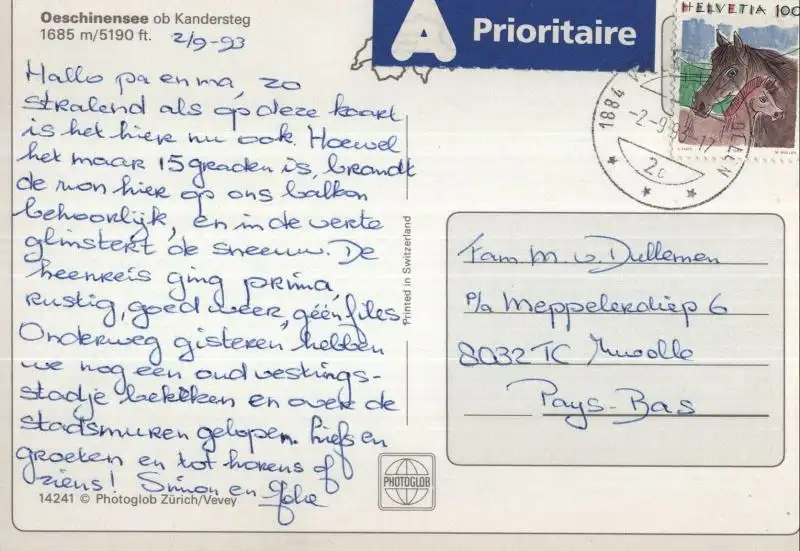 Oeschinensee ob Kandersteg
1685 m/5190 ft. 2/9-93
Hallo pa en ma, zo
stralend als op deze kaart
is het hier nu ook. Hoewel
het maar 15 graden is, brandt
de zon hier op ons balkon
behoorlijk, en in de verte
glinstert de sneeuw. De
heenreis ging prima,
rustig, goed weer, géén files.
Onderweg gisteren hebben
we nog een oud vestings-
stadje bekeken en over de
stadsmuren gelopen. Liefs en
groeten en tot horens of
ziens! Simon en
14241 © Photoglob Zürich/Vevey
Printed in Switzerland
PHOTOGLOB
A Prioritaire
HELVETIA 100
1884
-2-9-93-17
2c
Fam M v. Dullemen
p/a Meppelerdiep 6
8032TC Zwolle
Pays-Bas